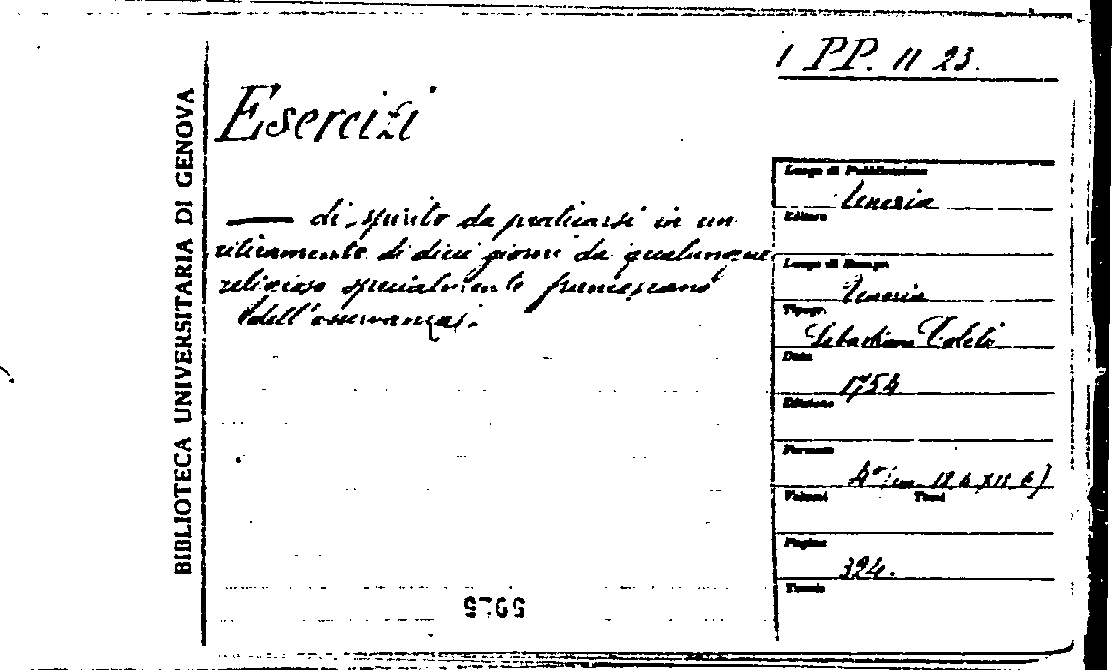 1 PP. II 23.
BIBLIOTECA UNIVERSITARIA DI GENOVA
Esercizi
— di spirito da praticarsi in un
ritiramento di dieci giorni da qualunque
religioso specialmente francescano
dell'osservanza.
Luogo di Pubblicazione
Venezia
Editore
Luogo di Stampa
Venezia
Tipogr.
Sebastiano Coleti
Data
1754
Edizione
Formato
Volumi Tomi
Pagine
324.
Tavole